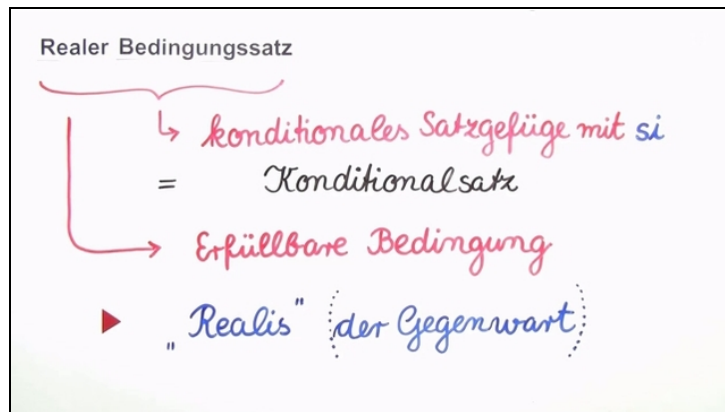 Realer Bedingungssatz
↳ konditionales Satzgefüge mit si
= Konditionalsatz
→ Erfüllbare Bedingung
▶ „Realis" (der Gegenwart)